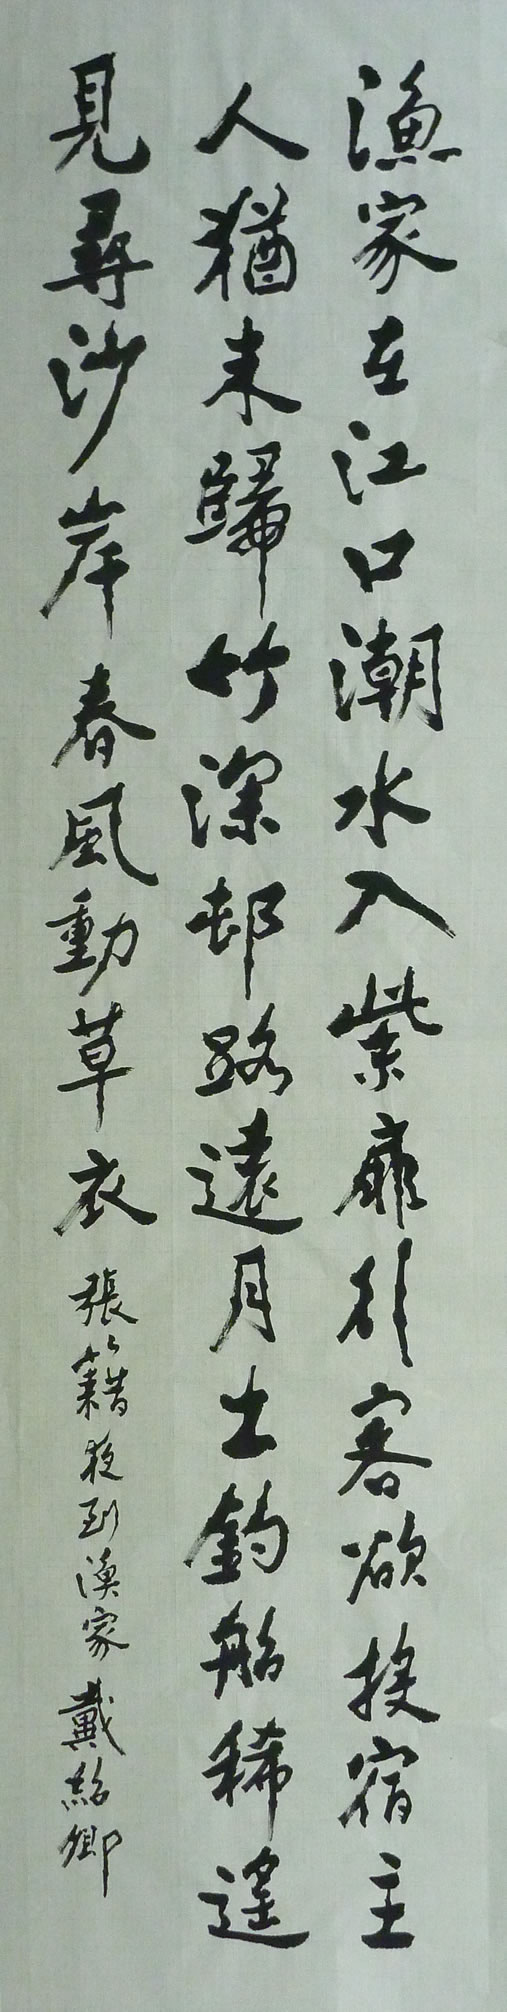 漁家在江口潮水入柴扉行客欲投宿主
人猶未歸竹深邨路遠月出釣船稀遙
見尋沙岸春風動草衣 張籍夜到漁家 戴紹卿